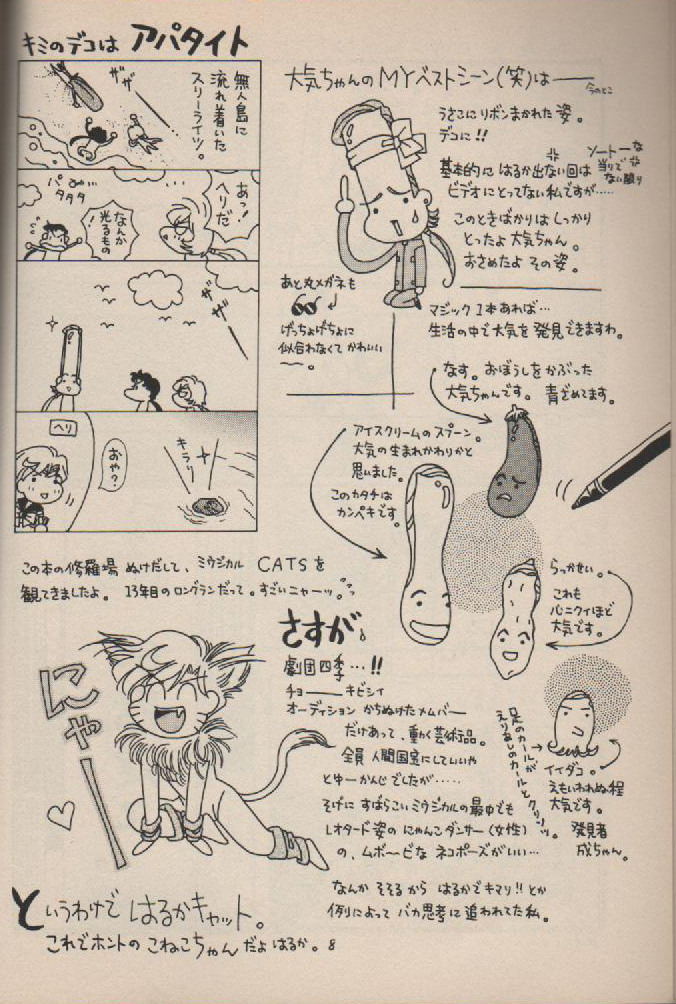 キミのデコは アパタイト
無人島に
流れ着いた
スリーライツ。
ザザー
あっ!
ヘリだ
なんか
光るもの
パタタタ
ザザー
ヘリ
おや?
キラリ
大気ちゃんのMYベストシーン(笑)は――
今のとこ
うさこにリボンまかれた姿。
デコに!!
基本的にはるか出ない回は
ソートーな
当りで
ない限り
ビデオにとってない私ですが……
このときばかりはしっかり
とったよ大気ちゃん。
おさめたよ その姿。
あと丸メガネも
げっちょげちょに
似合わなくて かわいい
ー。
マジック1本あれば…
生活の中で大気を発見できますわ。
なす。おぼうしをかぶった
大気ちゃんです。青ざめてます。
アイスクリームのスプーン。
大気の生まれかわりかと
思いました。
このカタチは
カンペキです。
らっかせい。
これも
心ニクイほど
大気です。
足のカールが
えりあしのカールとクリソツ。
イイダコ。
えもいわれぬ程
大気です。
発見者
成ちゃん。
この本の修羅場ぬけだして、ミウジカル CATSを
観てきましたよ。13年目のロングランだって。すごいニャーッ。
さすが
劇団四季…!!
チョーーキビシイ
オーディションかちぬけたメムバー
だけあって、動く芸術品。
全員人間国宝にしてんいや
とゆーかんじでしたが……
そげにすばらこいミウジカルの最中でも
レオタード姿のにゃんこダンサー(女性)
の、ムボービなネコポーズがいい…
なんかそそるからはるかでキマリ!!とか
例によってバカ思考に追われてた私。
にゃー
というわけで はるかキャット。
これでホントのこねこちゃんだよはるか。8